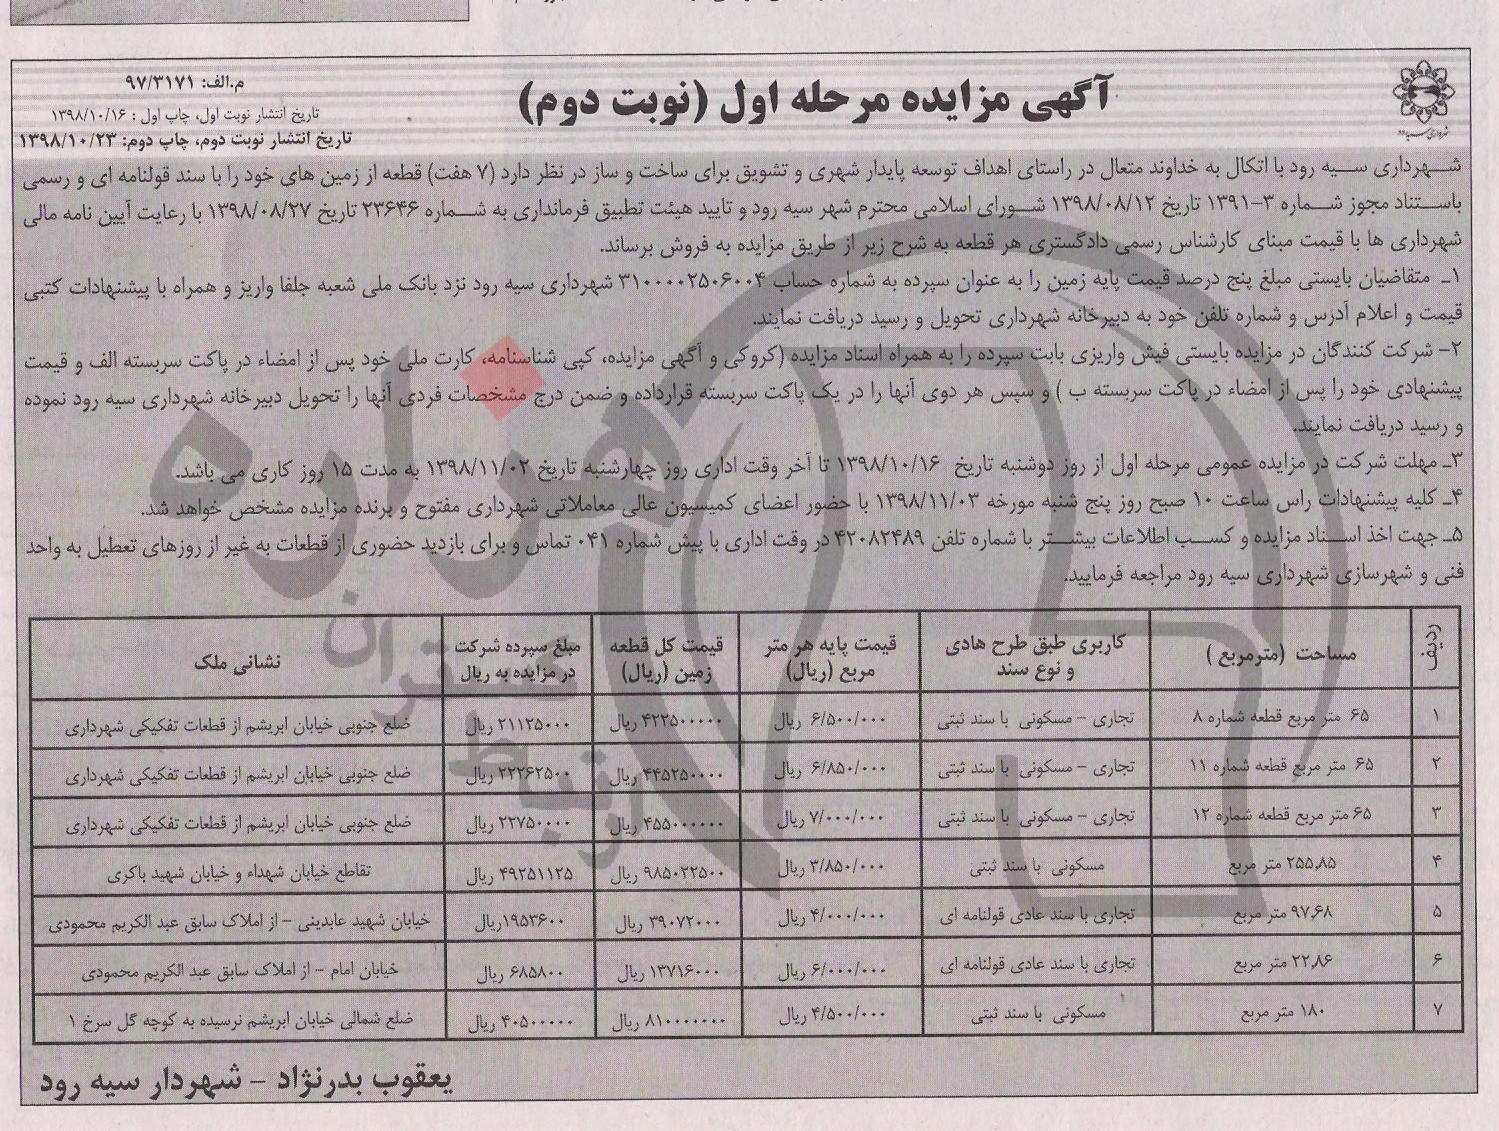 م.الف: ۹۷/۳۱۷۱
آگهی مزایده مرحله اول (نوبت دوم)
تاریخ انتشار نوبت اول، چاپ اول : ۱۳۹۸/۱۰/۱۶
تاریخ انتشار نوبت دوم، چاپ دوم: ۱۳۹۸/۱۰/۲۳
شهرداری سیه رود با اتکال به خداوند متعال در راستای اهداف توسعه پایدار شهری و تشویق برای ساخت و ساز در نظر دارد (۷ هفت) قطعه از زمین های خود را با سند قولنامه ای و رسمی
باستناد مجوز شماره ۳-۱۳۹۱ تاریخ ۱۳۹۸/۰۸/۱۲ شورای اسلامی محترم شهر سیه رود و تایید هیئت تطبیق فرمانداری به شماره ۲۳۶۴۶ تاریخ ۱۳۹۸/۰۸/۲۷ با رعایت آیین نامه مالی
شهرداری ها با قیمت مبنای کارشناس رسمی دادگستری هر قطعه به شرح زیر از طریق مزایده به فروش برساند.
۱ـ متقاضیان بایستی مبلغ پنج درصد قیمت پایه زمین را به عنوان سپرده به شماره حساب ۳۱۰۰۰۰۲۵۰۶۰۰۴ شهرداری سیه رود نزد بانک ملی شعبه جلفا واریز و همراه با پیشنهادات کتبی
قیمت و اعلام آدرس و شماره تلفن خود به دبیرخانه شهرداری تحویل و رسید دریافت نمایند.
۲- شرکت کنندگان در مزایده بایستی فیش واریزی بابت سپرده را به همراه اسناد مزایده (کروکی و آگهی مزایده، کپی شناسنامه، کارت ملی خود پس از امضاء در پاکت سربسته الف و قیمت
پیشنهادی خود را پس از امضاء در پاکت سربسته ب ) و سپس هر دوی آنها را در یک پاکت سربسته قرارداده و ضمن درج مشخصات فردی آنها را تحویل دبیرخانه شهرداری سیه رود نموده
و رسید دریافت نمایند.
۳ـ مهلت شرکت در مزایده عمومی مرحله اول از روز دوشنبه تاریخ ۱۳۹۸/۱۰/۱۶ تا آخر وقت اداری روز چهارشنبه تاریخ ۱۳۹۸/۱۱/۰۲ به مدت ۱۵ روز کاری می باشد.
۴ـ کلیه پیشنهادات راس ساعت ۱۰ صبح روز پنج شنبه مورخه ۱۳۹۸/۱۱/۰۳ با حضور اعضای کمیسیون عالی معاملاتی شهرداری مفتوح و برنده مزایده مشخص خواهد شد.
۵ـ جهت اخذ اسناد مزایده و کسب اطلاعات بیشتر با شماره تلفن ۴۲۰۸۲۴۸۹ در وقت اداری با پیش شماره ۰۴۱ تماس و برای بازدید حضوری از قطعات به غیر از روزهای تعطیل به واحد
فنی و شهرسازی شهرداری سیه رود مراجعه فرمایید.
ردیف مساحت (مترمربع ) کاربری طبق طرح هادی و نوع سند قیمت پایه هر متر مربع (ریال) قیمت کل قطعه زمین (ریال) مبلغ سپرده شرکت در مزایده به ریال نشانی ملک
۱ ۶۵ متر مربع قطعه شماره ۸ تجاری – مسکونی با سند ثبتی ۶/۵۰۰/۰۰۰ ریال ۴۲۲۵۰۰۰۰۰ ریال ۲۱۱۲۵۰۰۰ ریال ضلع جنوبی خیابان ابریشم از قطعات تفکیکی شهرداری
۲ ۶۵ متر مربع قطعه شماره ۱۱ تجاری – مسکونی با سند ثبتی ۶/۸۵۰/۰۰۰ ریال ۴۴۵۲۵۰۰۰۰ ریال ۲۲۲۶۲۵۰۰ ریال ضلع جنوبی خیابان ابریشم از قطعات تفکیکی شهرداری
۳ ۶۵ متر مربع قطعه شماره ۱۲ تجاری – مسکونی با سند ثبتی ۷/۰۰۰/۰۰۰ ریال ۴۵۵۰۰۰۰۰۰ ریال ۲۲۷۵۰۰۰۰ ریال ضلع جنوبی خیابان ابریشم از قطعات تفکیکی شهرداری
۴ ۲۵۵,۸۵ متر مربع مسکونی با سند ثبتی ۳/۸۵۰/۰۰۰ ریال ۹۸۵۰۲۲۵۰۰ ریال ۴۹۲۵۱۱۲۵ ریال تقاطع خیابان شهداء و خیابان شهید باکری
۵ ۹۷,۶۸ متر مربع تجاری با سند عادی قولنامه ای ۴/۰۰۰/۰۰۰ ریال ۳۹۰۷۲۰۰۰ ریال ۱۹۵۳۶۰۰ریال خیابان شهید عابدینی – از املاک سابق عبد الکریم محمودی
۶ ۲۲,۸۶ متر مربع تجاری با سند عادی قولنامه ای ۶/۰۰۰/۰۰۰ ریال ۱۳۷۱۶۰۰۰ ریال ۶۸۵۸۰۰ ریال خیابان امام – از املاک سابق عبد الکریم محمودی
۷ ۱۸۰ متر مربع مسکونی با سند ثبتی ۴/۵۰۰/۰۰۰ ریال ۸۱۰۰۰۰۰۰۰ ریال ۴۰۵۰۰۰۰۰ ریال ضلع شمالی خیابان ابریشم نرسیده به کوچه گل سرخ ۱
یعقوب بدرنژاد – شهردار سیه رود
هزاره